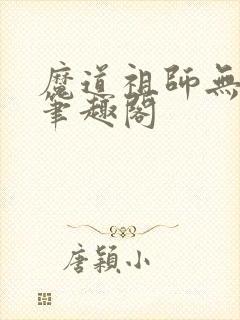 魔道祖師無
筆趣閣
唐穎小